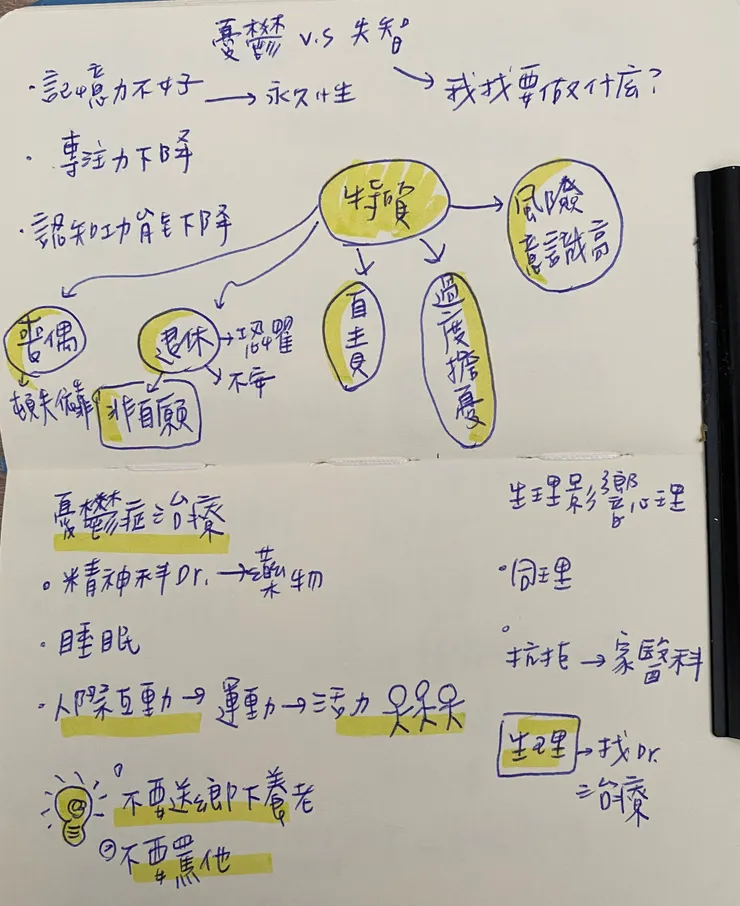 憂鬱 v.s 失智
·記憶力不好 → 永久性
→ 我找要做什麼?
·專注力下降
·認知功能下降
特質
風險
意識高
喪偶
頓失依靠
退休
→恐懼
不安
非自願
自主責
過度擔憂
憂鬱症治療
·精神科Dr. →藥物
·睡眠
·人際互動→運動→活力
①不要送鄉下養老
②不要罵他
生理影響心理
·同理
抗拒→家醫科
生理→找Dr.
治療